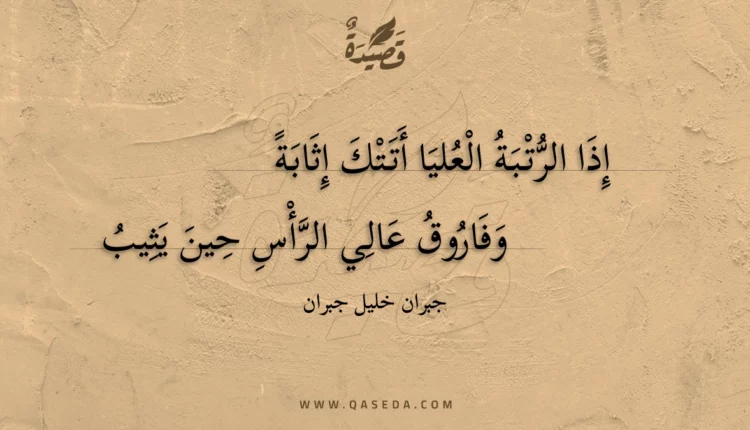 قَصِيدَةٌ
إِذَا الرُّتْبَةُ الْعُليَا أَتَتْكَ إِثَابَةً
وَفَارُوقُ عَالِي الرَّأْسِ حِينَ يَثِيبُ
جبران خليل جبران
WWW.QASEDA.COM